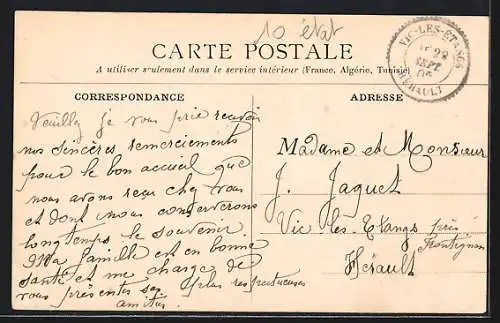 10 état
CARTE POSTALE
A utiliser seulement dans le service intérieur (France, Algérie, Tunisie)
VIC-LES-ÉTANGS
28
SEPT
05
HÉRAULT
CORRESPONDANCE
Veuillez je vous prie recevoir
nos sincères remerciements
pour le bon accueil que
nous avons reçu chez vous
et dont nous conserverons
longtemps le souvenir.
Ma famille est en bonne
santé et me charge de
vous présenter ses plus respectueuses
amitiés
ADRESSE
Madame et Monsieur
J. Jaquet
Vic les Etangs près
Frontignan
Hérault